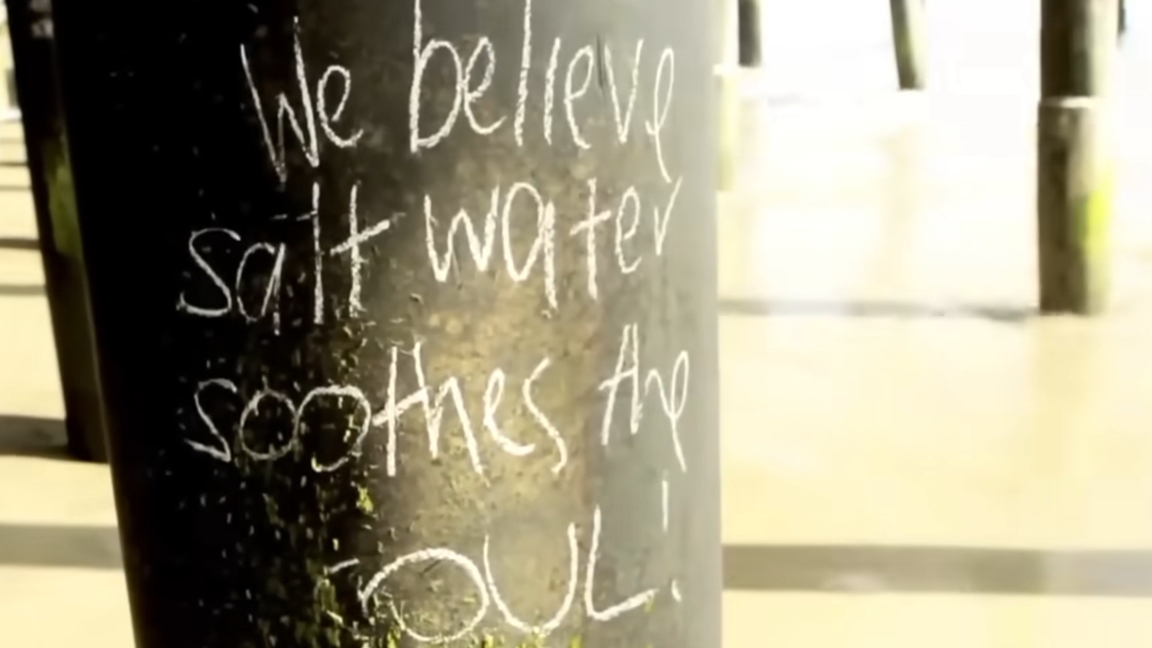 We believe
salt water
soothes the
SOUL!